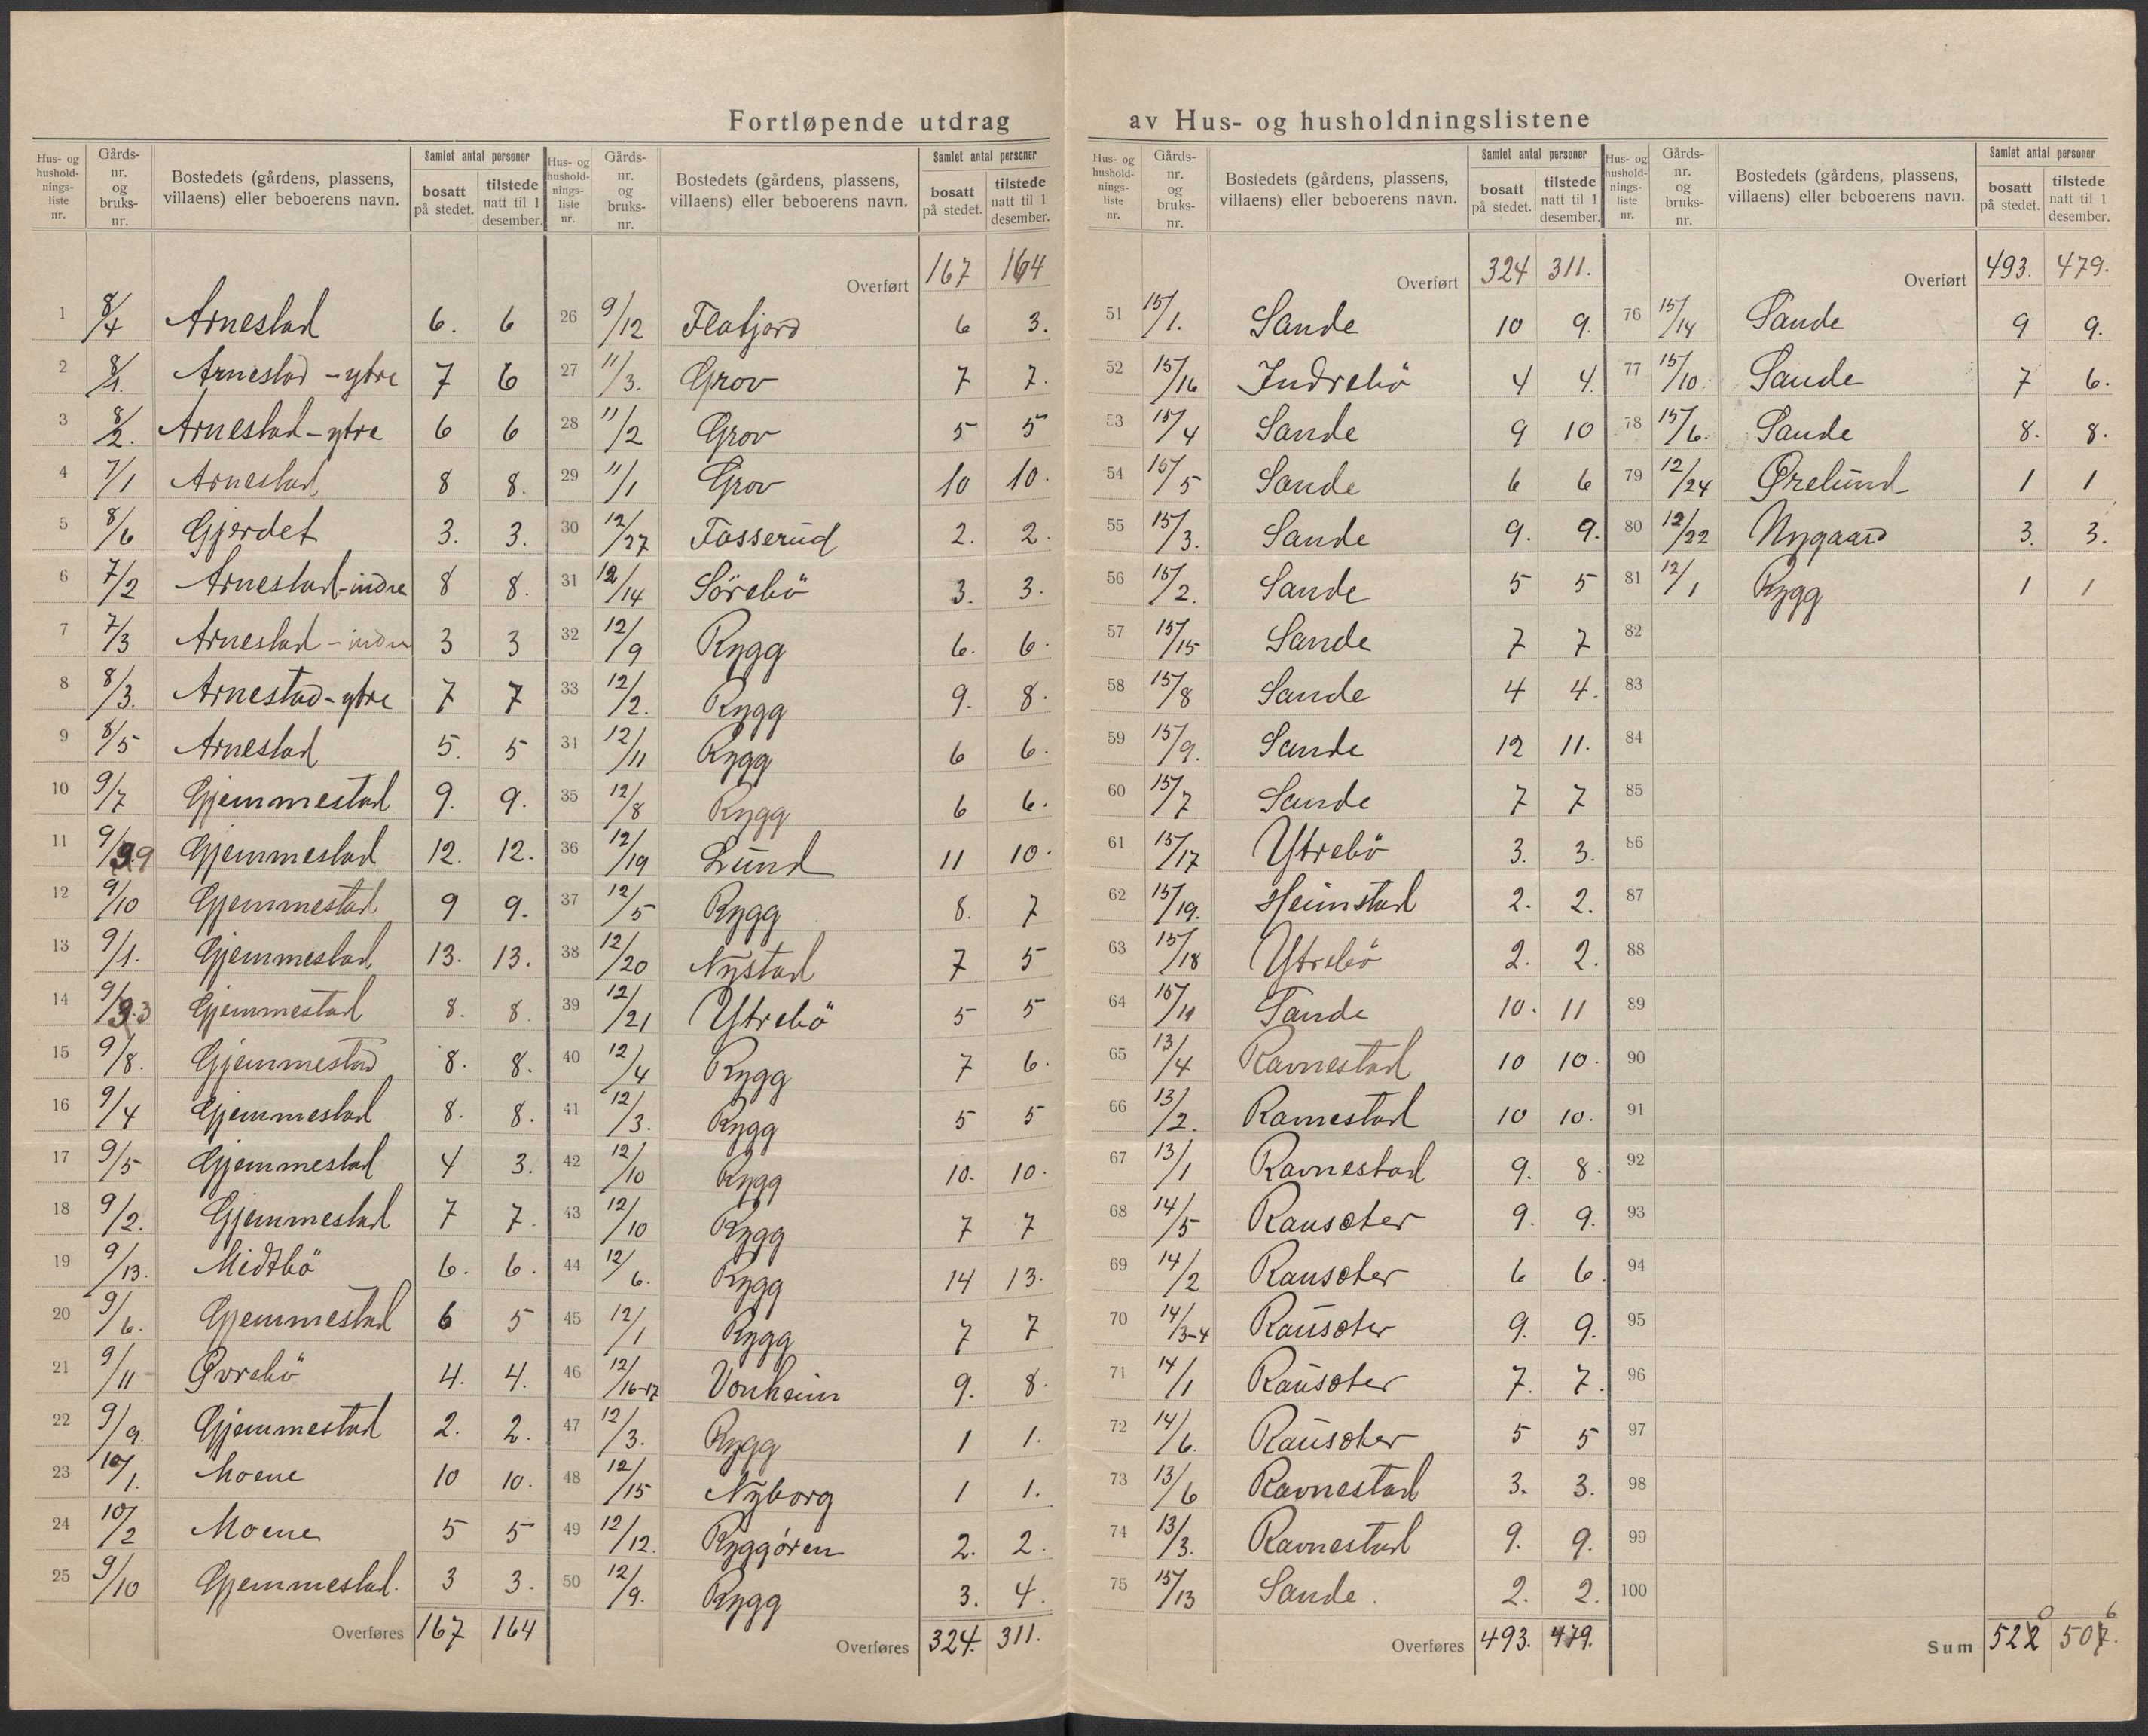 Fortløpende utdrag av Hus- og husholdningslistene
Hus- og husholdnings-liste nr. | Gårds-nr. og bruks-nr. | Bostedets (gårdens, plassens, villaens) eller beboerens navn. | Samlet antal personer bosatt på stedet. | tilstede natt til 1 desember.
1 8/4 Arnestad 6. 6
2 8/1. Arnestad - ytre 7 6
3 8/2. Arnestad - ytre 6 6
4 7/1 Arnestad 8 8.
5 8/6 Gjerdet 3. 3.
6 7/2 Arnestad - indre 8 8.
7 7/3 Arnestad - indre 3 3
8 8/3. Arnestad - ytre 7 7
9 8/5 Arnestad 5. 5
10 9/7 Gjemmestad 9. 9.
11 9/9 Gjemmestad 12. 12.
12 9/10 Gjemmestad 9 9.
13 9/1. Gjemmestad 13. 13.
14 9/3 Gjemmestad 8. 8.
15 9/8. Gjemmestad 8. 8.
16 9/4 Gjemmestad 8. 8.
17 9/5 Gjemmestad 4 3.
18 9/2. Gjemmestad 7 7.
19 9/13. Midtbö 6. 6.
20 9/6. Gjemmestad 6 5
21 9/11 Øvrebö 4. 4.
22 9/9. Gjemmestad 2. 2.
23 10/1. Moene 10 10.
24 10/2 Moene 5 5
25 9/10 Gjemmestad. 3 3.
Overføres 167 164
Hus- og husholdnings-liste nr. | Gårds-nr. og bruks-nr. | Bostedets (gårdens, plassens, villaens) eller beboerens navn. | Samlet antal personer bosatt på stedet. | tilstede natt til 1 desember.
Overført 167 164
26 9/12 Flatjord 6 3.
27 11/3. Grov 7 7.
28 11/2 Grov 5 5
29 11/1 Grov 10 10.
30 12/27 Fosserud 2. 2.
31 12/14 Sörebö 3. 3.
32 12/9 Rygg 6. 6.
33 12/2. Rygg 9. 8.
34 12/11 Rygg 6 6.
35 12/8 Rygg 6 6.
36 12/19 Lund 11 10.
37 12/5 Rygg 8. 7
38 12/20 Nystad 7 5
39 12/21 Ytrebö 5 5
40 12/4 Rygg 7 6.
41 12/3. Rygg 5 5
42 12/10 Rygg 10. 10.
43 12/10 Rygg 7 7
44 12/6. Rygg 14 13.
45 12/1 Rygg 7 7
46 12/16-17 Vonheim 9. 8.
47 12/3. Rygg 1 1.
48 12/15 Nyborg 1 1.
49 12/12. Ryggören 2. 2.
50 12/9. Rygg 3. 4.
Overføres 324. 311.
Hus- og husholdnings-liste nr. | Gårds-nr. og bruks-nr. | Bostedets (gårdens, plassens, villaens) eller beboerens navn. | Samlet antal personer bosatt på stedet. | tilstede natt til 1 desember.
Overført 324 311.
51 15/1. Sande 10 9.
52 15/16 Indrebö 4 4.
53 15/4 Sande 9 10
54 15/5 Sande 6 6
55 15/3. Sande 9. 9.
56 15/2. Sande 5 5
57 15/15 Sande 7 7
58 15/8 Sande 4 4.
59 15/9. Sande 12 11.
60 15/7 Sande 7 7
61 15/17 Ytrebö 3. 3.
62 15/19. Heimstad 2. 2.
63 15/18 Ytrebö 2. 2.
64 15/11 Sande 10. 11
65 13/4 Ravnestad 10 10.
66 13/2. Ravnestad 10 10.
67 13/1 Ravnestad 9. 8.
68 14/5 Rauseter 9. 9.
69 14/2 Rauseter 6 6.
70 14/3-4 Rauseter 9. 9.
71 14/1 Rauseter 7. 7.
72 14/6. Rauseter 5 5
73 13/6 Ravnestad 3. 3.
74 13/3. Ravnestad 9. 9.
75 15/13 Sande. 2. 2.
Overføres 493. 479.
Hus- og husholdnings-liste nr. | Gårds-nr. og bruks-nr. | Bostedets (gårdens, plassens, villaens) eller beboerens navn. | Samlet antal personer bosatt på stedet. | tilstede natt til 1 desember.
Overført 493. 479.
76 15/14 Sande 9 9.
77 15/10. Sande 7 6.
78 15/6. Sande 8. 8.
79 12/24 Ørelund 1 1
80 12/22 Nygaard 3. 3.
81 12/1 Rygg 1 1
82
83
84
85
86
87
88
89
90
91
92
93
94
95
96
97
98
99
100
0 6
Sum 522 507.